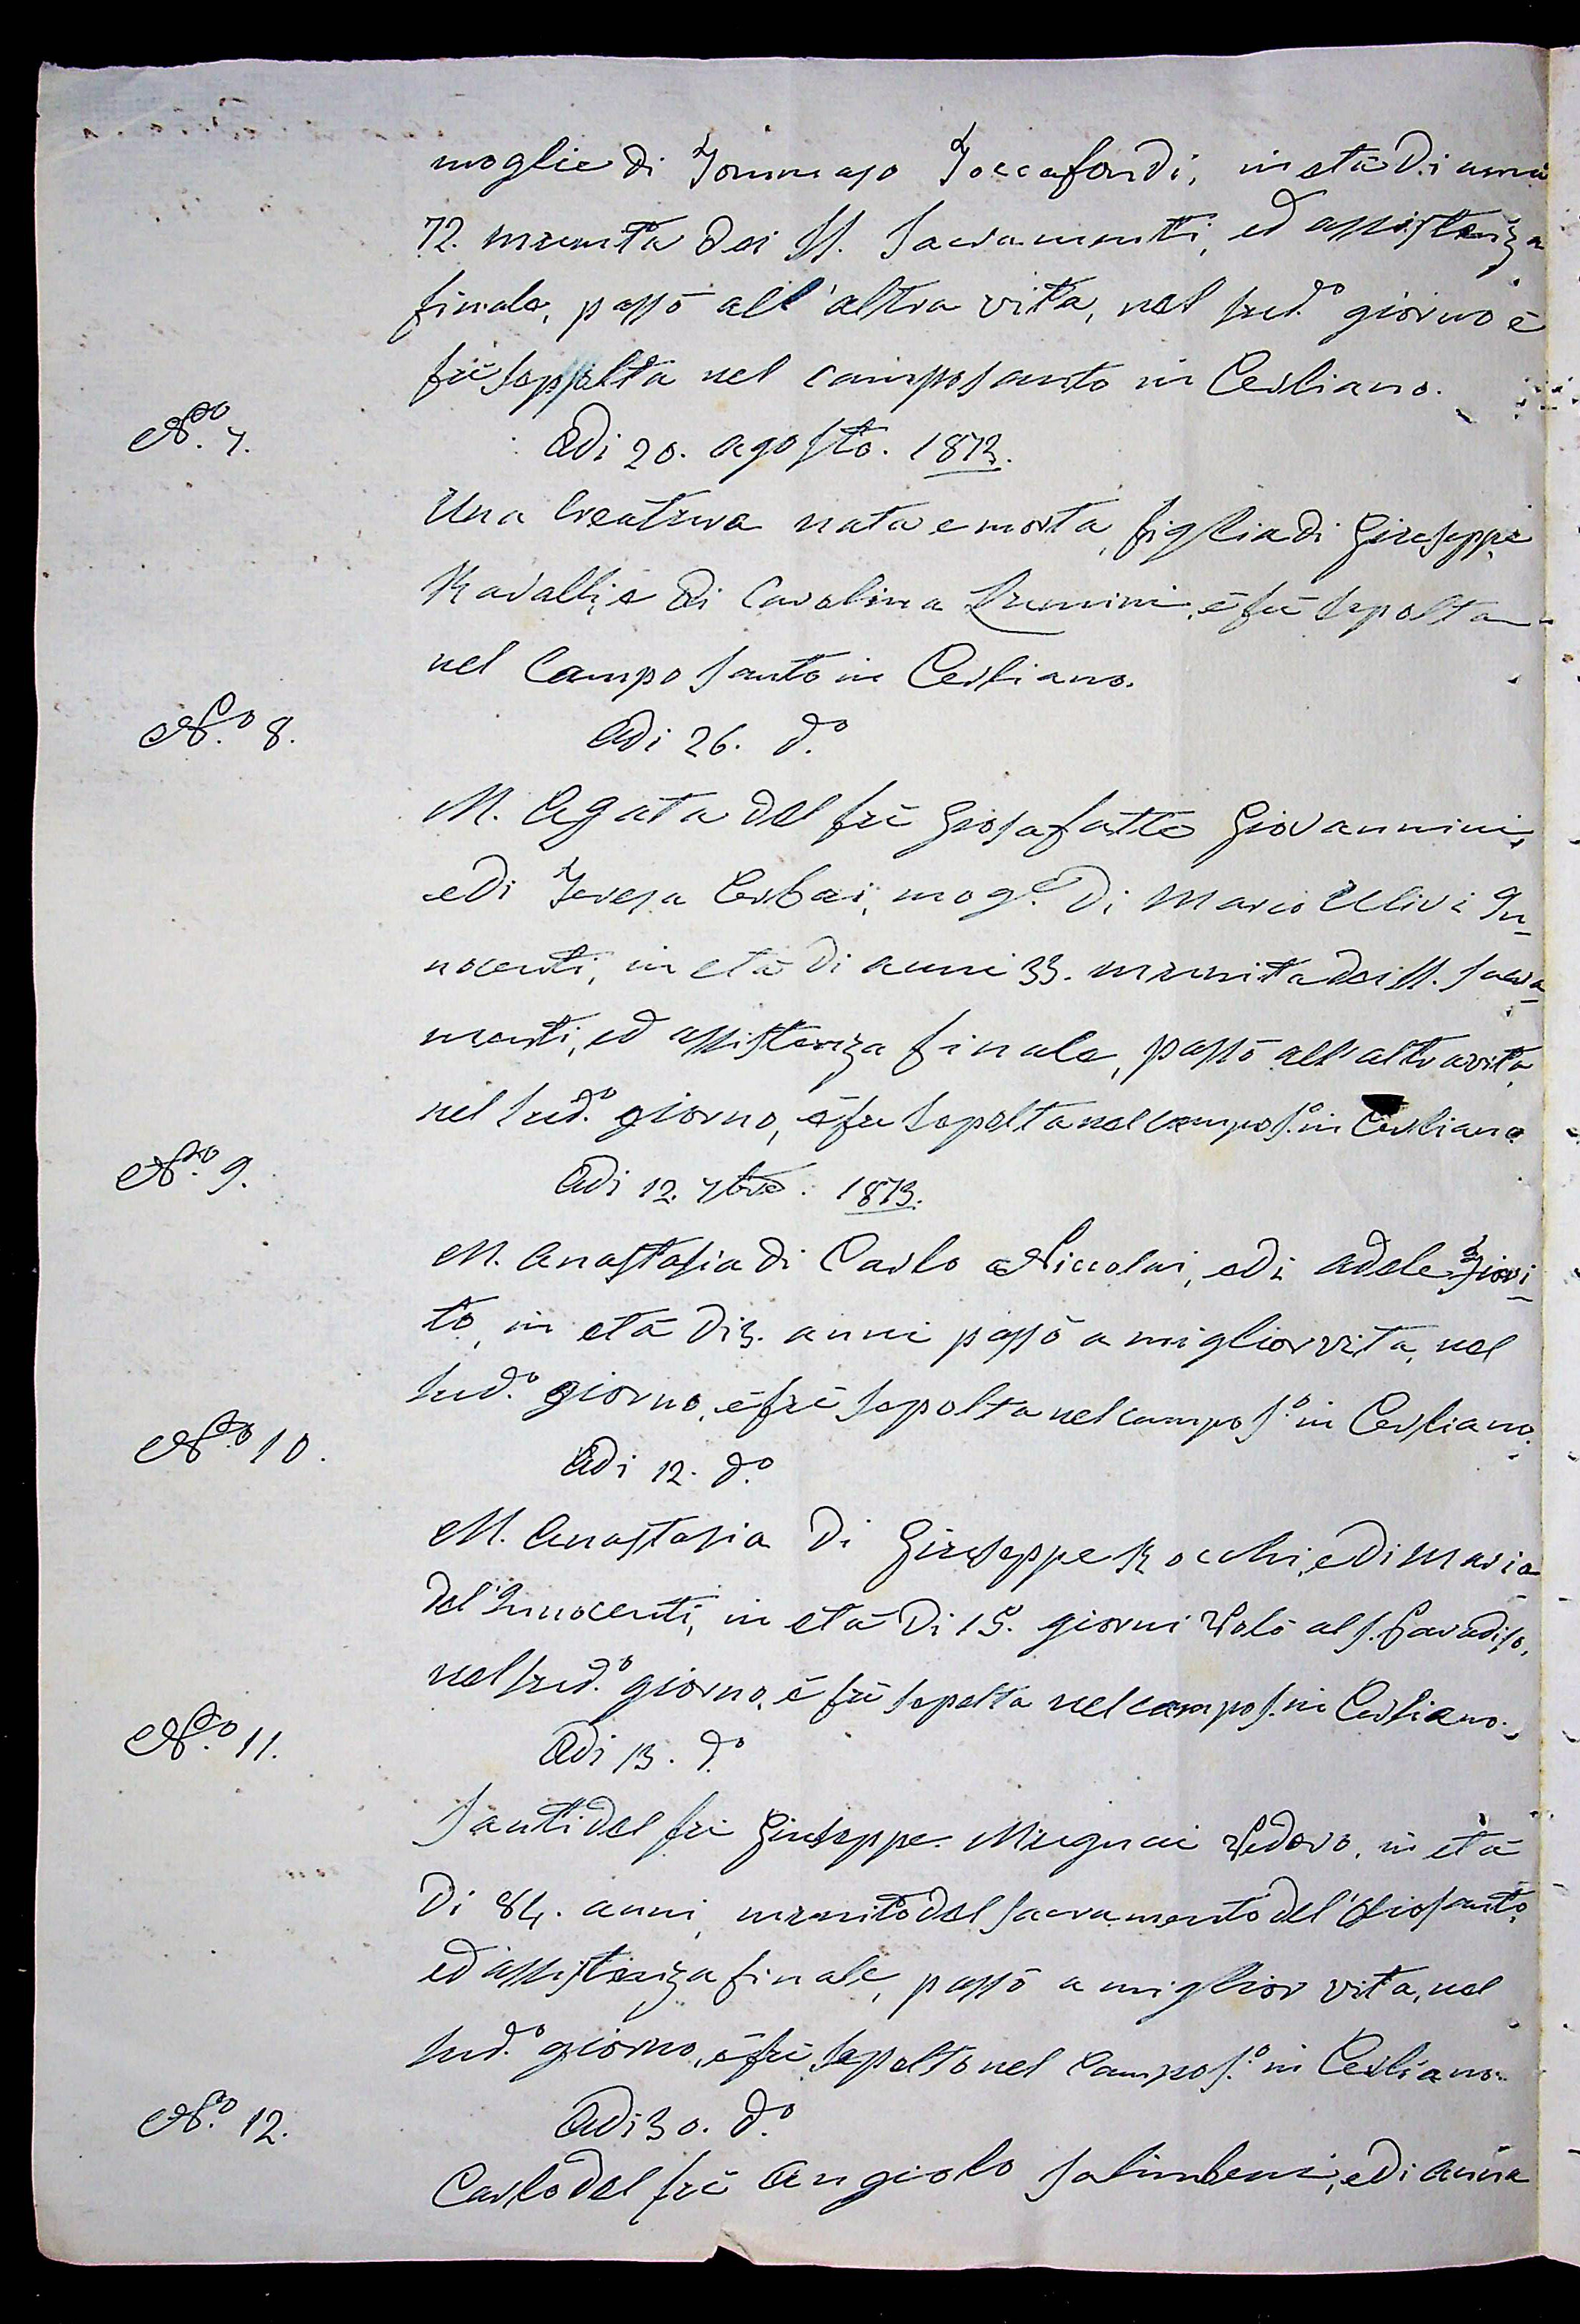 moglie di Tommaso Toccafondi, in età di anni
72. munita dei SS. Sacramenti, ed assistenza
finale, passò all'altra vita, nel sud.º giorno è
fù seppolta nel camposanto in Cerliano.
N.ro 7.
Adi 20. agosto. 1873.
Una Creatura nata e morta, figlia di Giuseppe
Ravalli, e di Carolina Lumini, è fù sepolta
nel Campo Santo in Cerliano.
N.º 8.
Adi 26. d.º
M. Agata del fù Giosafatte Giovannini,
e di Teresa Cerbai, mog.e di Mario Ulivi In_
nocenti, in età di anni 33. munita dei SS. Sacra_
menti, ed assistenza finale, passò all'altra vita,
nel sud.º giorno, è fu sepolta nel campos.º in Cerliano
N.ro 9.
Adi 12. 7bre. 1873.
M. Anastasia di Carlo Niccolai, e di Adele Fiori_
to, in età di 3. anni passò a miglior vita, nel
sud.º giorno, è fù sepolta nel campos.º in Cerliano.
N.ro 10.
Adi 12. d.º
M. Anastasia di Giuseppe Rocchi, e di Maria
del'Innocenti, in età di 15. giorni Volò al S. Paradiso,
nel sud.º giorno, è fù sepolta nel campos. in Cerliano.
N.º 11.
Adi 13. d.º
Santi del fù Giuseppe Mugnai Vedovo, in età
di 84. anni, munito del Sacramento del'Olio Santo,
ed assistenza finale, passò a miglior vita, nel
sud.º giorno, è fù sepolto nel Campos.º in Cerliano.
N.ro 12.
Adi 30. d.º
Carlo del fù Angiolo Salimbeni, e di Anna